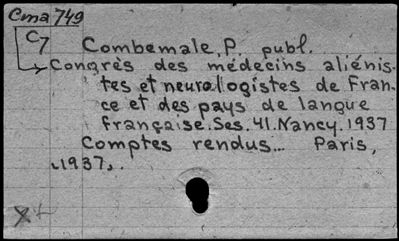 Cma 749
C7
Combemale, P. publ.
Congrès des médecins aliénis-
tes et neurologistes de Fran-
ce et des pays de langue
française. Ses. 41. Nancy. 1937
Comptes rendus... Paris,
1937.